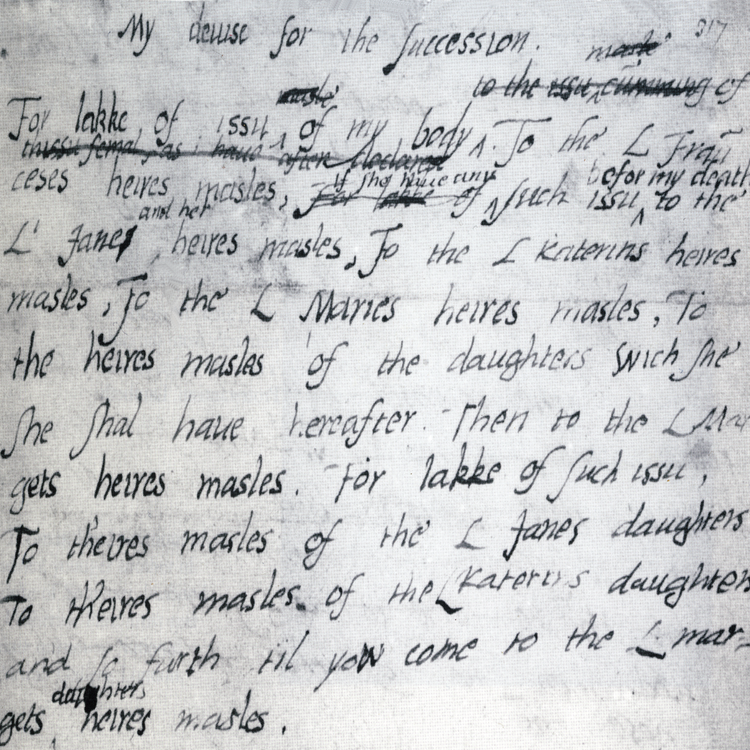 My deuise for the succession.
317
masle
to the issu cumming of
masle
For lakke of issu ‸ of my body ‸. To the L Frau
thissu femal, as i haue after declared
ceses heires masles, For lakke of ‸ such issu ‸ to the
if she haue any
befor my death
L' Janes heires masles, To the L Katerins heires
and her
masles, To the L Maries heires masles, To
the heires masles of the daughters wich she
she shal haue hereafter. Then to the L Mar
gets heires masles. For lakke of such issu,
To theires masles of the L Janes daughters
To theires masles of the L Katerins daughters
and so furth til yow come to the L mar-
daughters
gets heires masles.